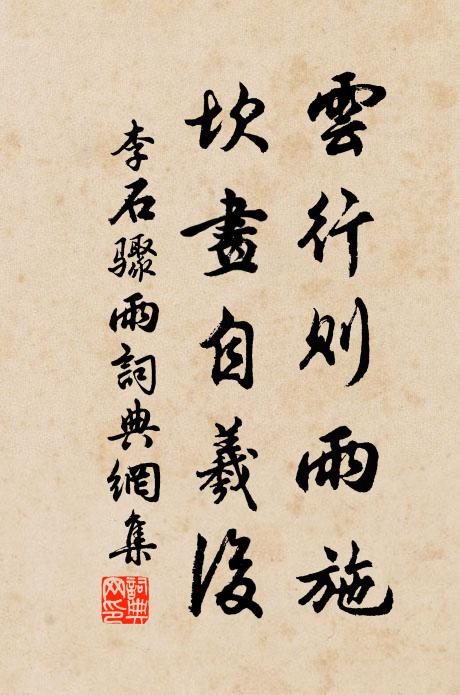 雲行則雨施
坎畫自羲後
李石驟雨詞典網集
詞典